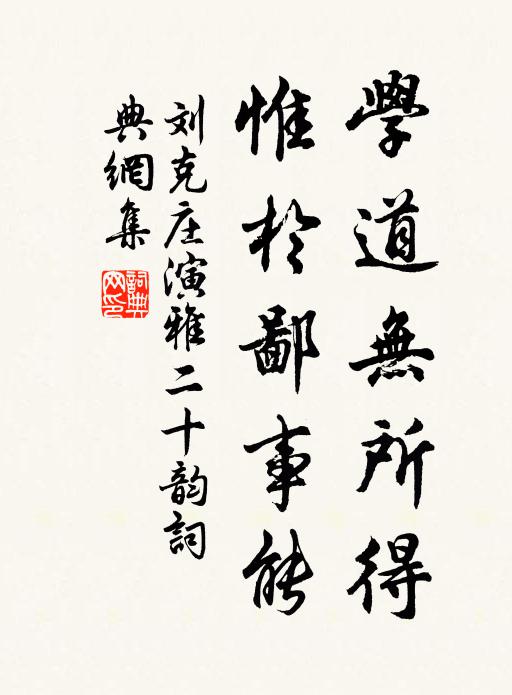 學道無所得
惟於鄙事能
刘克庄演雅二十韵詞
典網集
詞典
网印